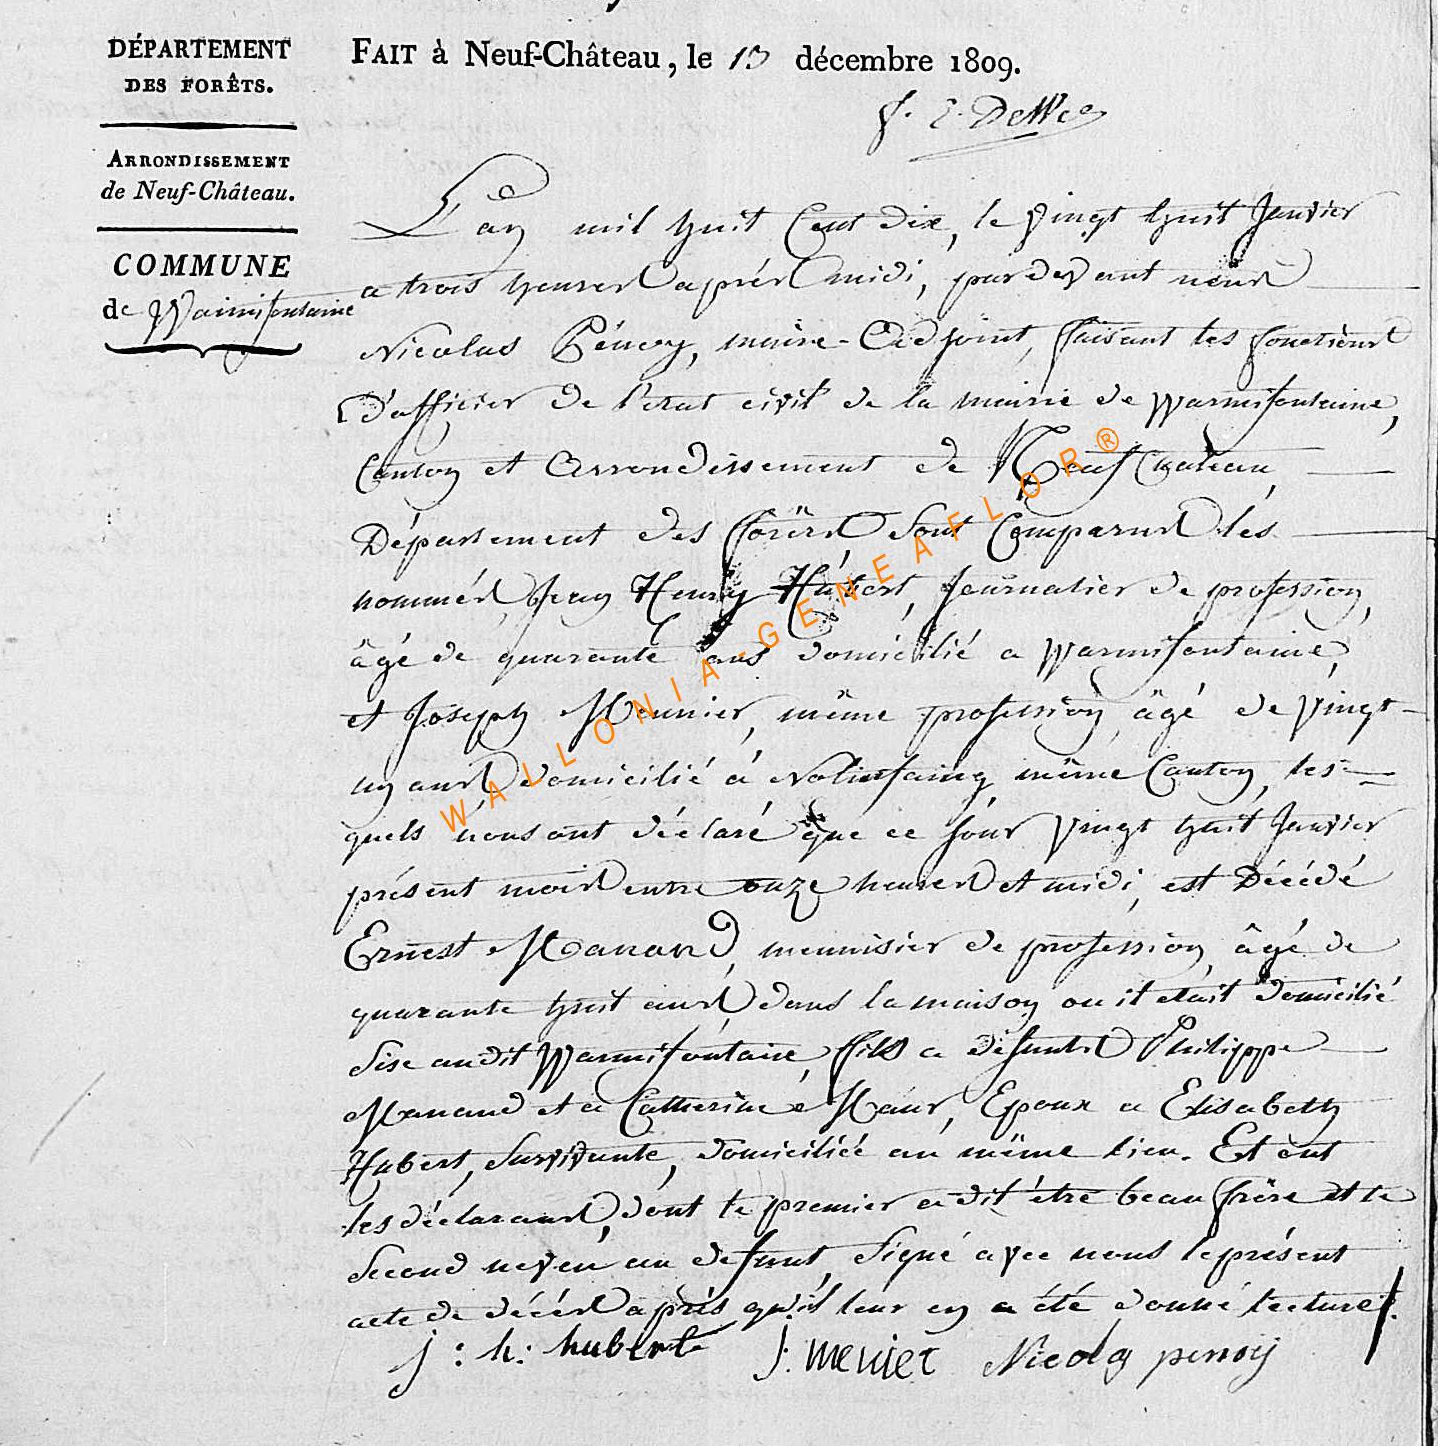 DÉPARTEMENT
DES FORÊTS.
ARRONDISSEMENT
de Neuf-Château.
COMMUNE
de Warmifontaine
FAIT à Neuf-Château, le 13 décembre 1809.
L'an mil huit Cent dix, le vingt huit Janvier
a trois heures après midi, pardevant nous
Nicolas Pénoy, maire-Adjoint, faisant les fonctions
D'officier de l'etat civil de la mairie de Warmifontaine,
Canton et Arrondissement de Neufchateau,
Département des forêts sont Comparus les
nommés Jean Henry Hubert, Journalier de profession,
âgé de quarante ans domicilié a Warmifontaine,
et Joseph Meunier, même profession, âgé de vingt
un ans domicilié á Nolinfaing même Canton, les-
quels nous ont déclaré que ce jour vingt huit Janvier
présent mois entre onze heures et midi, est Décédé
Ernest Manand, menuisier de profession, âgé de
quarante huit ans, dans la maison ou il était domicilié
Sise audit Warmifontaine, fils a défunts Philippe
Manand et a Catherine Maur, Epoux a Elisabeth
Hubert, Survivante, domiciliée au même lieu. Et ont
les déclarans, dont le premier a dit être beau frère et le
Second neveu au defunt, Signé avec nous le présent
acte de décés après qu'il leur en a été donné lecture.
j: h: hubert J. menier Nicolas penoy
WALLONIA-GENEAFLOR®